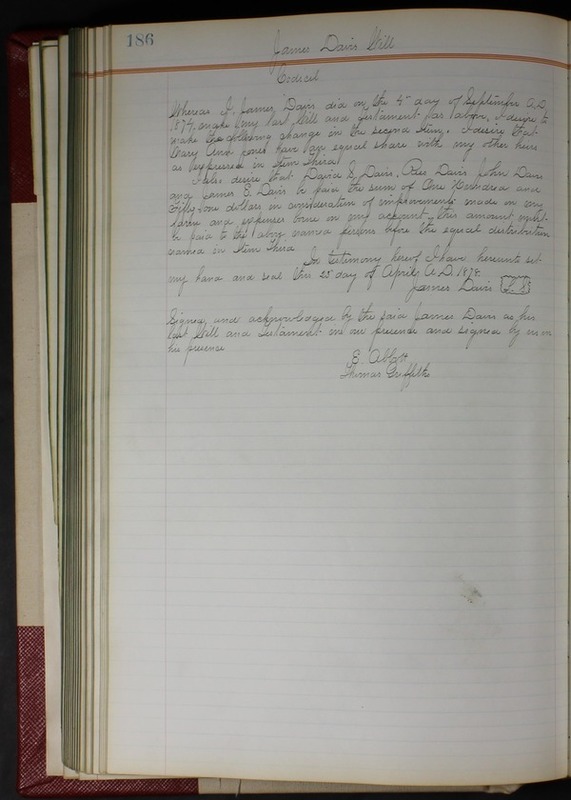 186
James Davis Will
Codicil
Whereas I, James Davis did on the 4" day of September A.D.
1874, make my last Will and Testament as above, I desire to
make the following change in the second Item. I desire that
Mary Ann Jones have an equal share with my other heirs
as expressed in Item Third
I also desire that David S. Davis, Rees Davis John Davis
and James E. Davis be paid the sum of One Hundred and
Fifty-one dollars in consideration of improvements made on my
farm and expenses borne on my account, this amount must
be paid to the above named persons before the equal distribution
named in Item Third
In testimony hereof I have hereunto set
my hand and seal this 25" day of April A.D. 1878.
James Davis L.S.
Signed and acknowledged by the said James Davis as his
last Will and Testament in our presence and signed by us in
his presence
E. Abbott
Thomas Griffiths